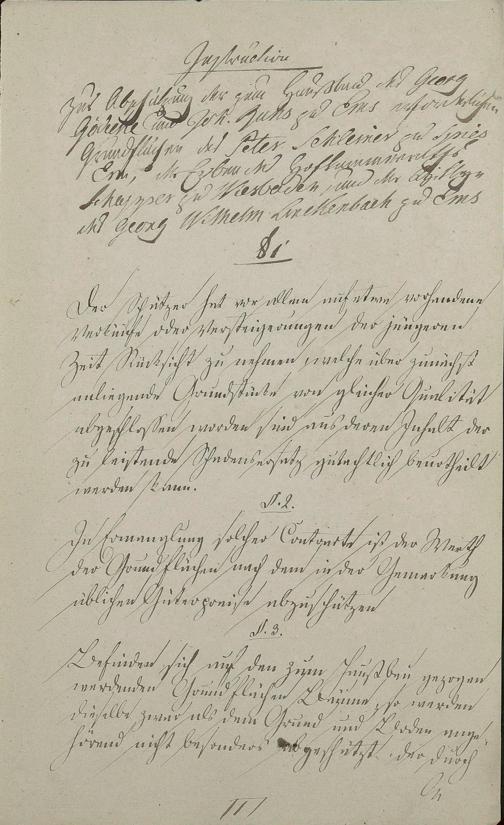 Instruction
zur Abschätzung der zum Hausbau des Georg
und Joh. zu Ems erforderlichen
Grundflächen des Peter Schleimer zu
Ems, der Erben des
zu Wiesbaden, und der
des Georg Wilhelm Linckenbach zu Ems
§ 1
Der Schätzer hat vor allem auf etwa vorhandene
Verkäufe oder Versteigerungen der jüngeren
Zeit Rücksicht zu nehmen, welche über zunächst
anliegende Grundstücke von gleicher Qualität
abgeschlossen worden sind aus deren Inhalt der
zu leistende Schadensersatz gutachtlich beurtheilt
werden kann.
§. 2.
In Ermanglung solcher Contracte ist der Werth
der Grundflächen nach dem in der Gemarkung
üblichen Güterpreise abzuschätzen
§. 3.
Befinden sich auf den zum Hausbau gezogen
werdenden Grundflächen Bäume, so werden
dieselbe zwar als dem Grund und Boden ange-
hörend nicht besonders abgeschätzt. der durch